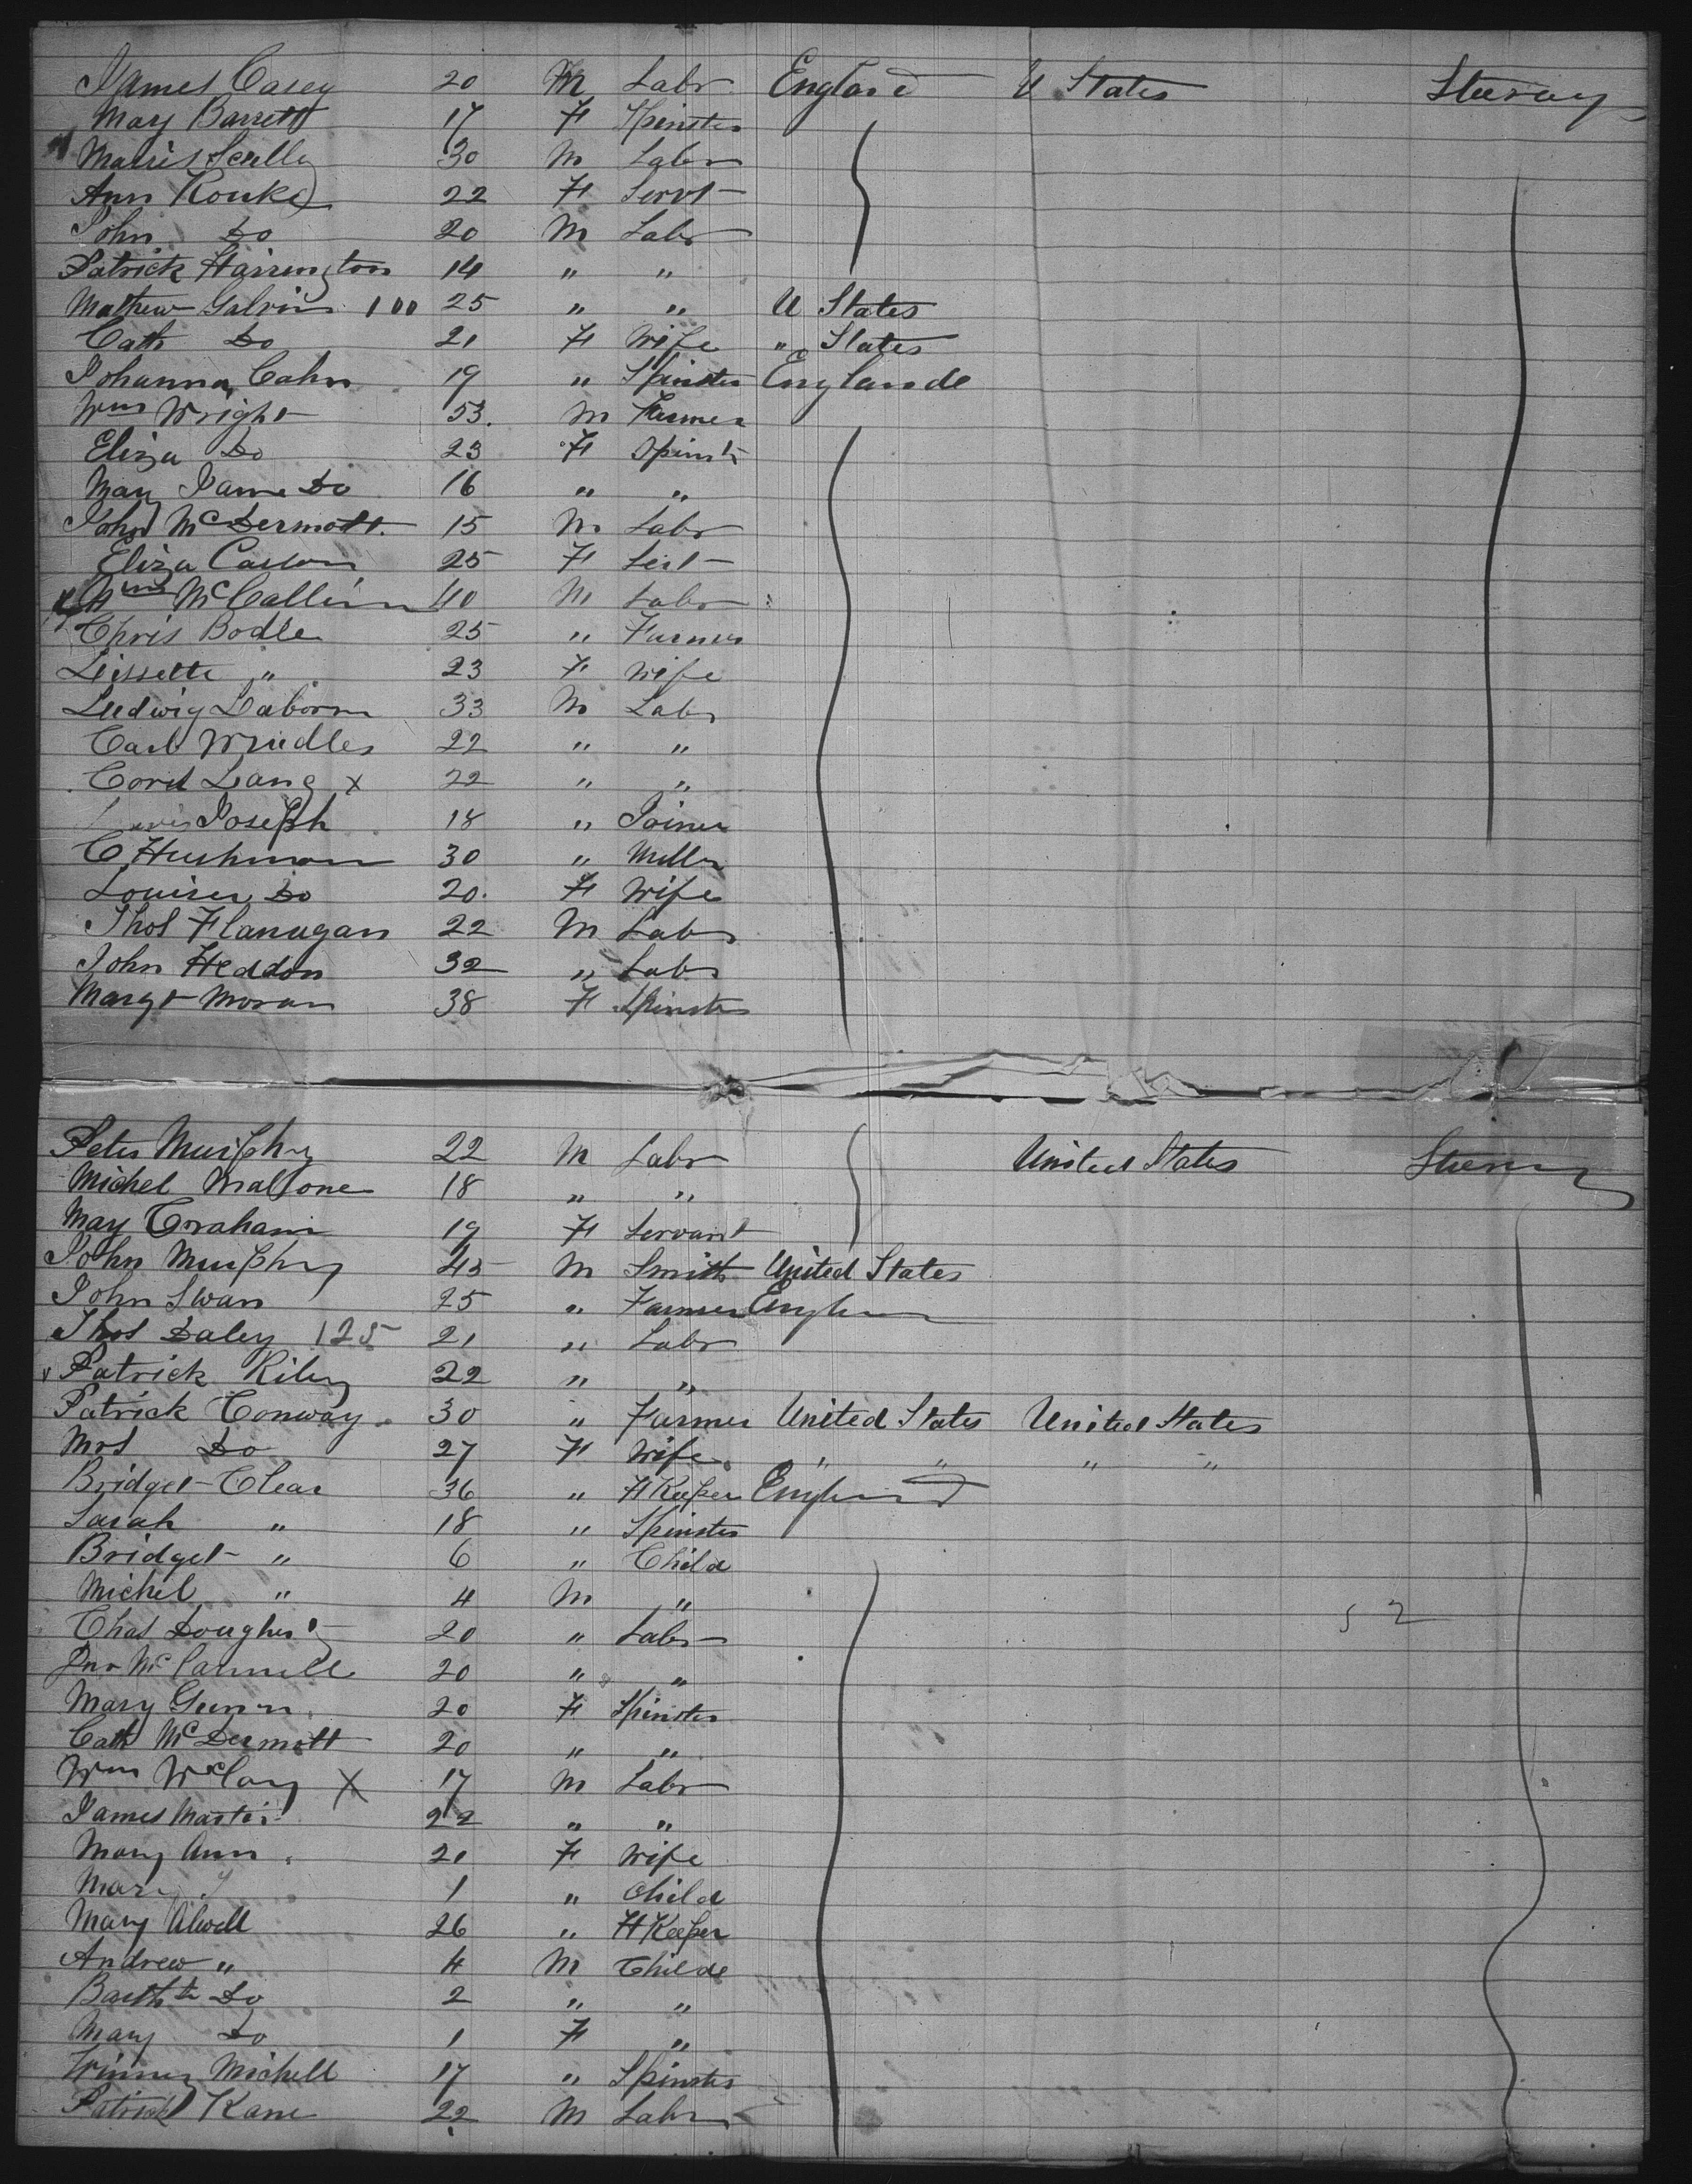 James Casey 20 M Labr England U States Steerage
Mary Barrett 17 F Spinster
Scully 30 M Labr
Ann Rouke 22 F Servt
John Do 20 M Labr
Patrick Harrington 14 " "
Mathew Galvin 100 25 " " U States
Cath Do 21 F Wife " States
Johanna Cahn 19 " Spinster Englande
Wm Wright 53. M Farmer
Eliza Do 23 F Spinstr
Mary Jane Do 16 " "
John McDermott. 15 M Labr
Eliza 25 F
Wm McCallum 40 M Labr
Chris Bodle 25 " Farmer
Lissette " 23 F Wife
Ludwig 33 M Labr
Carl 22 " "
Cord Lang x 22 " "
Joseph 18 " Joiner
C Hushmann 30 " Miller
Louisa Do 20. F Wife
Thos Flanagan 22 M Labr
John Heddon 32 " Labr
Margt Moran 38 F Spinster
Peter Murphy 22 M Labr United States Steerage
Michel Mallone 18 " "
May Graham 19 F Servant
John Murphy 45 M Smith United States
John Swan 25 " Farmer England
Thos Daley 125 21 " Labr
Patrick Riley 22 " "
Patrick Conway 30 " Farmer United States United States
Mrs Do 27 F Wife " " " "
Bridget Clear 36 " HKeeper England
Sarah " 18 " Spinster
Bridget " 6 " Child
Michel " 4 M "
52
Chas Dougherty 20 " Labr
Jno McConnell 20 " "
Mary Gunn 20 F Spinster
Cath McDermott 20 " "
Wm McCoy X 17 M Labr
James Martin 22 " "
Mary Ann 21 F Wife
Mary 1 " Child
Mary Alwell 26 " HKeeper
Andrew " 4 M Childe
Do 2 " "
Mary Do 1 F "
Michell 17 " Spinster
Patrick Kane 22 M Labr